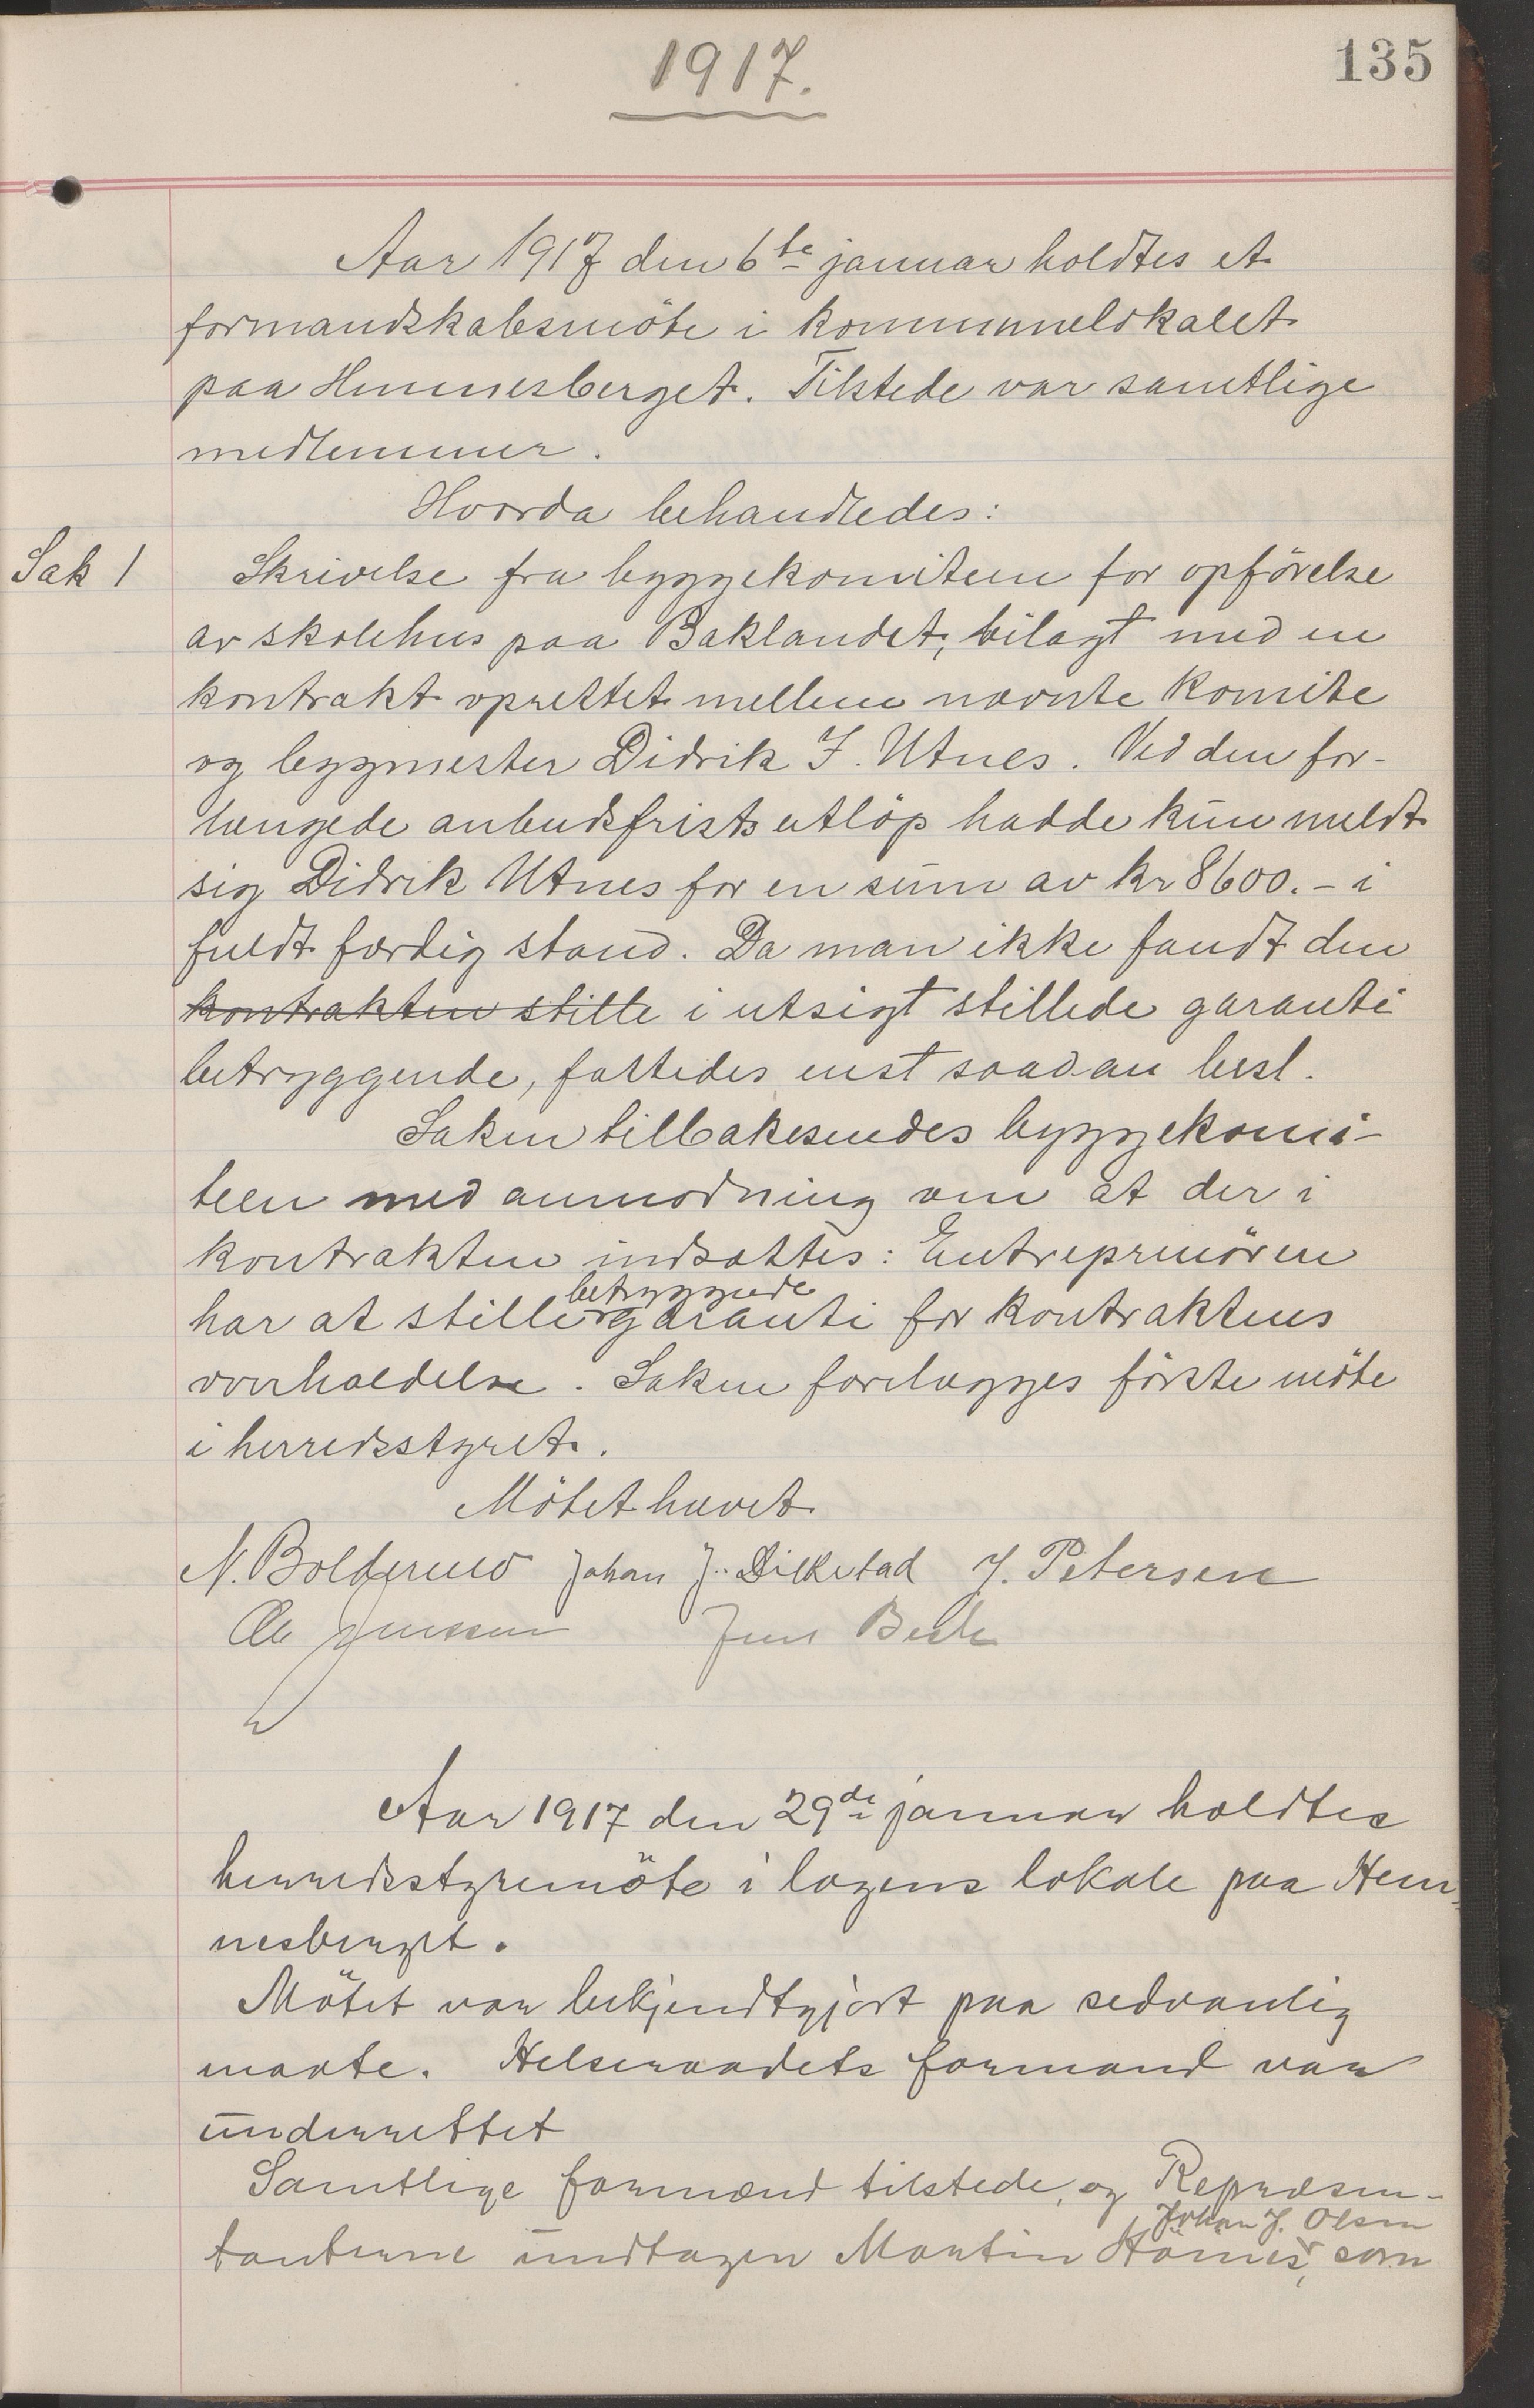 1917.
135
Aar 1917 den 6te januar holdtes et
formandskabsmöte i kommunelokalet
paa Hemnesberget. Tilstede var samtlige
medlemmer.
Hvorda behandledes:
Sak 1 Skrivelse fra byggekomiteen for opförelse
av skolehus paa Baklandet, bilagt med en
kontrakt oprettet mellem nævnte komite
og bygmester Didrik J. Utnes. Ved den for-
længede anbudsfrists utlöp hadde kun meldt
sig Didrik Utnes for en sum av kr 8600.- i
fuldt færdig stand. Da man ikke fandt den
kontrakten stille i utsigt stillede garanti
betryggende, fattedes enst saadan besl.
Saken tilbakesendes byggekomi-
teen med anmodning om at der i
kontrakten indsættes: Entreprenören
betryggende
har at stille garanti for kontraktens
overholdelse. Saken forelægges förste möte
i herredsstyret.
Mötet hævet
N. Boldermo Johan J. Dilkestad J. Petersen
Ole Jenssen Jens Beck
Aar 1917 den 29de januar holdtes
herredsstyremöte i logens lokale paa Hem-
nesberget.
Mötet var bekjendtgjort paa sedvanlig
maate. Helseraadets formand var
underrettet
Samtlige formænd tilstede, og Repræsen-
Johan J. Olsen
tanterne undtagen Martin, som